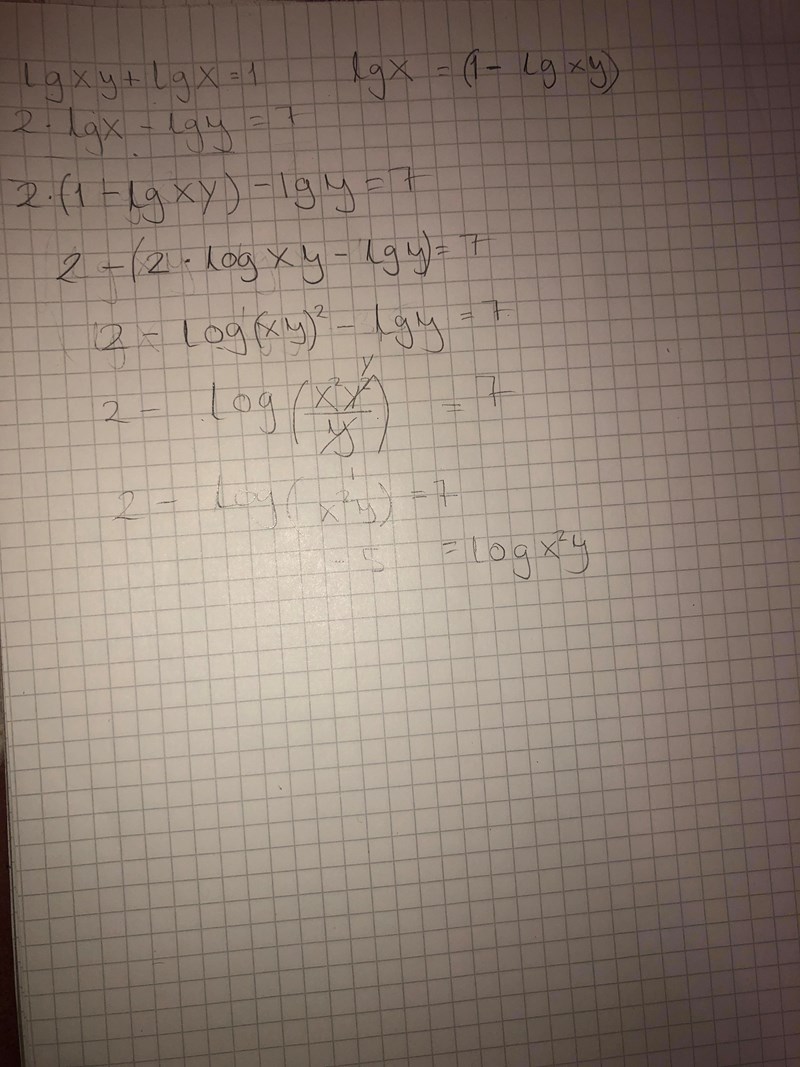 lgxy + lgx = 1    lgx = (1 - lgxy)
2 · lgx - lgy = 7
2·(1 - lgxy) - lgy = 7
2 - (2 · logxy - lgy) = 7
2 - log(xy)² - lgy = 7
2 - log(x²y²/y) = 7
2 - log(x²y) = 7
-5 = logx²y